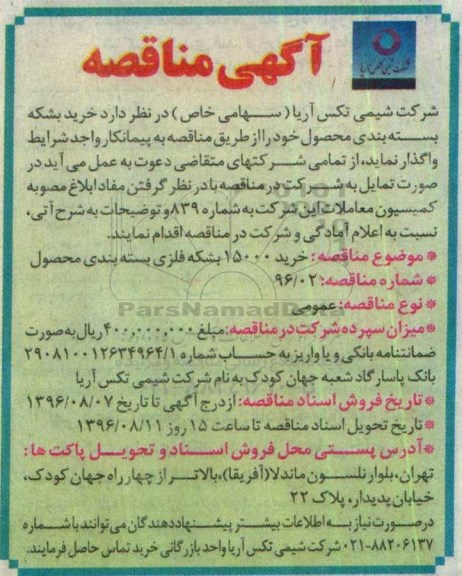 آگهی مناقصه
شرکت شیمی تکس آریا (سهامی خاص) در نظر دارد خرید بشکه
بسته بندی محصول خود را از طریق مناقصه به پیمانکار واجد شرایط
واگذار نماید، از تمامی شرکتهای متقاضی دعوت به عمل می آید در
صورت تمایل به شرکت در مناقصه با در نظر گرفتن مفاد ابلاغ مصوبه
کمیسیون معاملات این شرکت به شماره ۸۳۹ و توضیحات به شرح آتی،
نسبت به اعلام آمادگی و شرکت در مناقصه اقدام نمایند.
* موضوع مناقصه: خرید ۱۵۰۰۰ بشکه فلزی بسته بندی محصول
* شماره مناقصه: ۹۶/۰۲
* نوع مناقصه: عمومی
ParsNamadData
* میزان سپرده شرکت در مناقصه: مبلغ ۴۰۰,۰۰۰,۰۰۰ ریال به صورت
ضمانتنامه بانکی و یا واریز به حساب شماره ۲۹۰۸۱۰۰۱۲۶۳۴۹۶۴/۱
بانک پاسارگاد شعبه جهان کودک به نام شرکت شیمی تکس آریا
* تاریخ فروش اسناد مناقصه: از درج آگهی تا تاریخ ۱۳۹۶/۰۸/۰۷
* تاریخ تحویل اسناد مناقصه تا ساعت ۱۵ روز ۱۳۹۶/۰۸/۱۱
* آدرس پستی محل فروش اسناد و تحویل پاکت ها:
تهران، بلوار نلسون ماندلا (آفریقا)، بالاتر از چهار راه جهان کودک،
خیابان پدیدار، پلاک ۲۲
در صورت نیاز به اطلاعات بیشتر پیشنهاد دهندگان می توانند با شماره
۰۲۱-۸۸۲۰۶۱۳۷ شرکت شیمی تکس آریا واحد بازرگانی خرید تماس حاصل فرمایند.